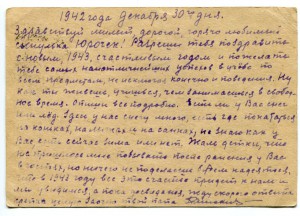 1942 года Декабря 30го дня.
Здравствуй милый, дорогой, горячо любимый
сынулька Юрочек! Разреши тебя поздравить
с новым, 1943, счастливым годом и пожелать
тебе самых наилучших успехов в учебе по
всем предметам, не исключая конечно и поведения. Ну
как ты живешь, учишься, чем занимаешься в свобод-
ное время. Опиши все подробно. Есть ли у Вас снег
или лед. Здесь у нас снегу много, есть где покататься
на коньках, на лыжах и на санках, не знаю как у
Вас есть сейчас зима или нет. Жаль детки, что
не пришлось мне побывать после ранения у Вас
в гостях, но ничего не поделаешь. Будем надеяться,
что в 1943 году все это счастье придет и мы с то-
бой увидимся, а пока до свидания, жду скорого ответа
целую твой папа